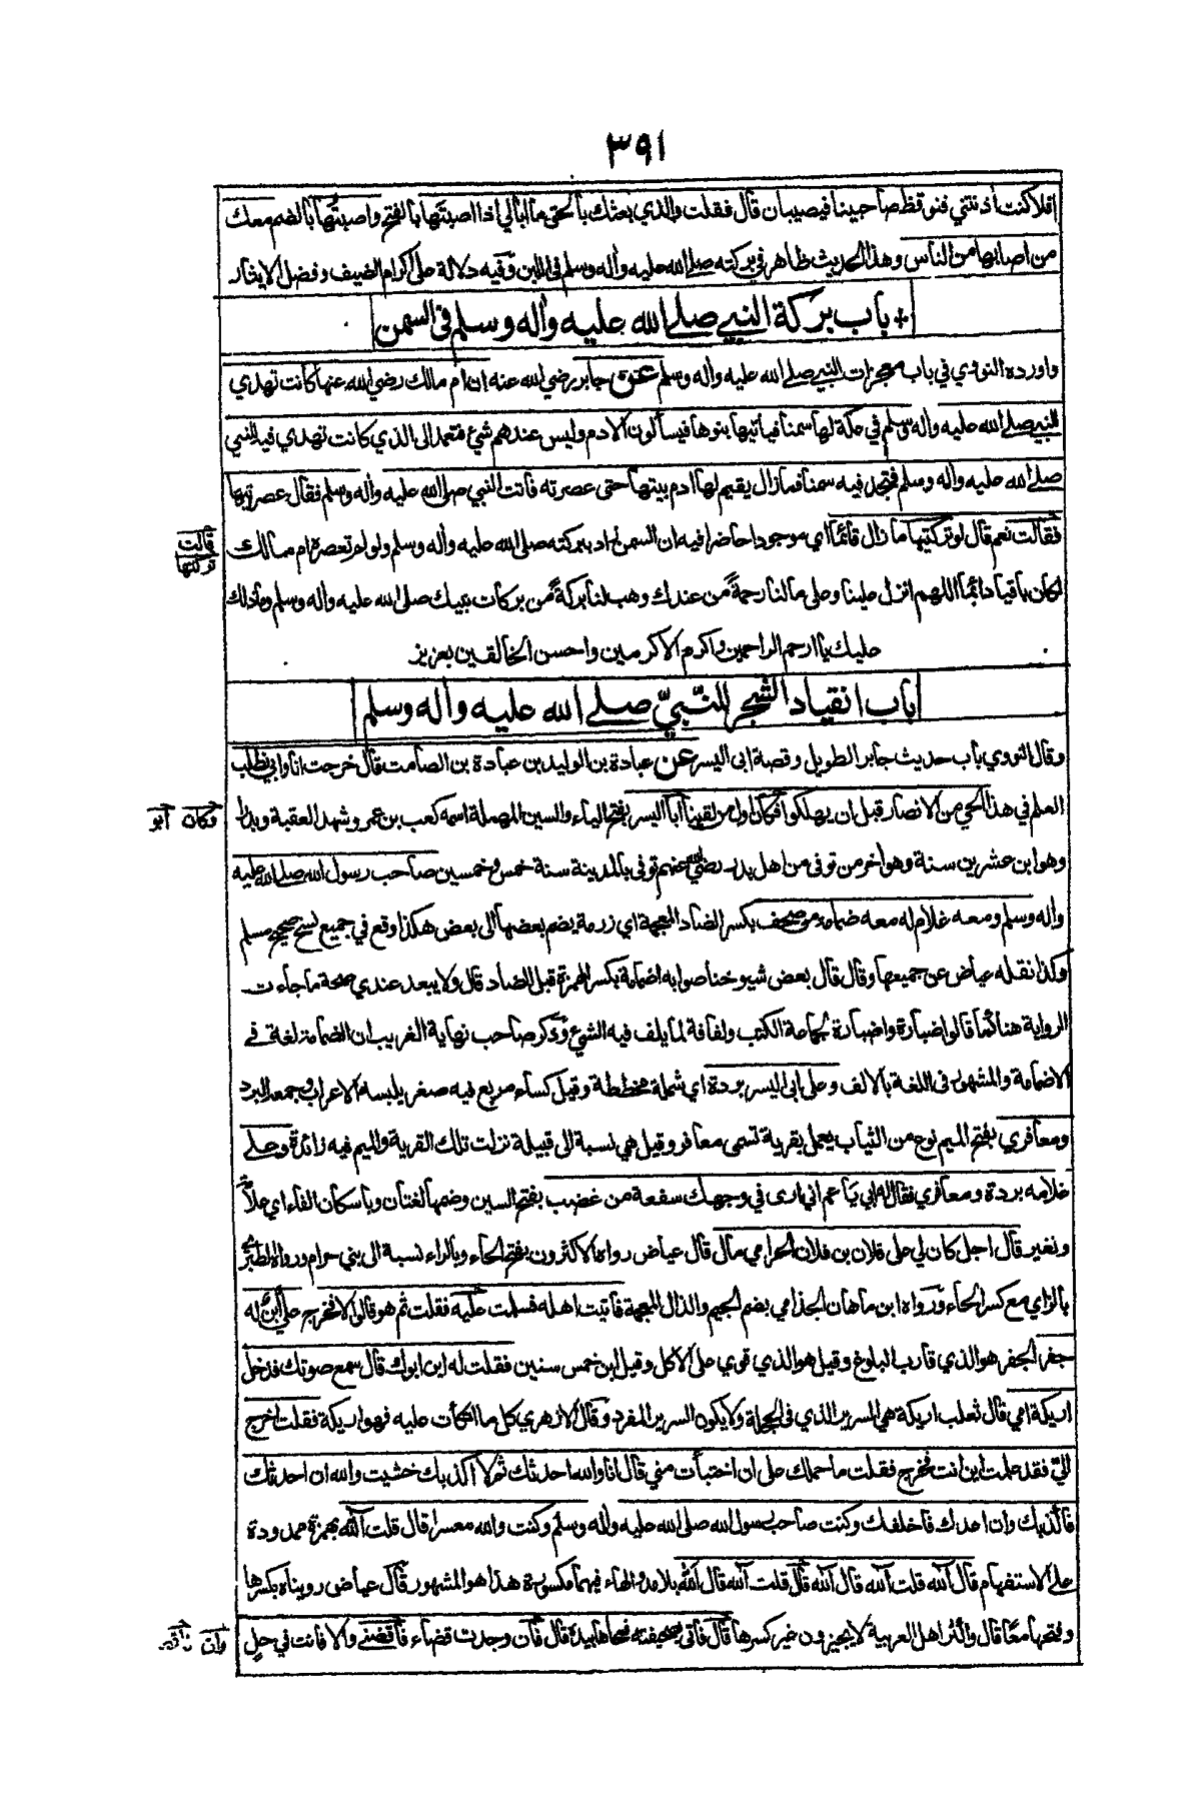 ٣٩١
افلا كنت أذنتني فنوقظ صاحبينا فيصيبان قال فقلت والذي بعثك بالحق ما أبالي اذا اصبتَها بالفتح واصبتُها بالضم معك
من اصابها من الناس وهذا الحديث ظاهر في بركته صلى الله عليه وأله وسلم في اللبن وفيه دلالة على اكرام الضيف وفضل الايثار
باب بركة النبي صلى الله عليه وأله وسلم فى السمن
واورده النووي في باب معجزات النبي صلى الله عليه واله وسلم عن جابر رضي الله عنه ان ام مالك رضي الله عنها كانت تهدي
للنبي صلى الله عليه واله وسلم في عكة لها سمنا فيأتيها بنوها فيسألون الادم وليس عندهم شيء فتعمد الى الذي كانت تهدي فيه للنبي
صلى الله عليه واله وسلم فتجد فيه سمنا فما زال يقيم لها ادم بيتها حتى عصرته فأتت النبي صلى الله عليه وأله وسلم فقال عصرتيها
فقالت نعم قال لو تركتيها ما زال قائما أي موجودا حاضرا فيه ان السمن زاد ببركته صلى الله عليه وأله وسلم ولو لم تعصره ام مالك
قالت
تركتها
لكان باقيا دائما اللهم انزل علينا وعلى مالنا رحمةً من عندك وهب لنا بركةً من بركات نبيك صلى الله عليه واله وسلم وما ذلك
عليك يا ارحم الراحمين واكرم الاكرمين واحسن الخالقين بعزيز
باب انقياد الشجر للنّبيّ صلى الله عليه وأله وسلم
وقال النووي باب حديث جابر الطويل وقصة ابى اليسر عن عبادة بن الوليد بن عبادة بن الصامت قال خرجت انا وابي نطلب
العلم في هذا الحي من الانصار قبل ان يهلكوا فكان اول من لقينا أبا اليسر بفتح الياء والسين المهملة اسمه كعب بن عمر وشهد العقبة وبدرا
وكان أبو
وهو ابن عشرين سنة وهو اخر من توفى من اهل بدر رضي الله عنهم توفى بالمدينة سنة خمس وخمسين صاحب رسول الله صلى الله عليه
وأله وسلم ومعه غلام له معه ضمامة من صحف بكسر الضاد المعجمة اي رزمة يضم بعضها الى بعض هكذا وقع في جميع نسخ صحيح مسلم
وكذا نقله عياض عن جميعها وقال قال بعض شيوخنا صوابه اضمامة بكسر الهمزة قبل الضاد قال ولا يبعد عندي صحة ما جاءت
الرواية هنا كما قالوا ضبارة واضبارة لجماعة الكتب ولفافة لما يلف فيه الشيء وذكر صاحب نهاية الغريب ان الضمامة لغة في
الاضمامة والمشهور في اللغة بالالف وعلى ابى اليسر بردة اي شملة مخططة وقيل كساء مربع فيه صغر يلبسه الاعراب وجمعه البرد
ومعافري بفتح الميم نوع من الثياب يعمل بقرية تسمى معافر وقيل هي نسبة الى قبيلة نزلت تلك القرية والميم فيه زائدة وعلى
غلامه بردة ومعافري فقال له ابي يا عم اني ارى في وجهك سفعة من غضب بفتح السين وضمها لغتان وباسكان الفاء اي علامة
وتغير قال اجل كان لي على فلان بن فلان الحرامي مال قال عياض رواه الاكثرون بفتح الحاء وبالراء نسبة الى بني حرام ورواه الطبري
بالزاي مع كسر الحاء ورواه ابن ماهان الجذامي بضم الجيم والذال المعجمة فأتيت اهله فسلمت عليه فقلت ثم هو قالوا لا فخرج علي ابن له
جفر الجفر هو الذي قارب البلوغ وقيل هو الذي قوي على الاكل وقيل ابن خمس سنين فقلت له اين ابوك قال سمع صوتك فدخل
اريكة امي قال ثعلب اريكة هي السرير الذي في الحجلة ولا يكون السرير المفرد وقال الازهري كل ما اتكأت عليه فهو اريكة فقلت اخرج
الي فقد علمت اين انت فخرج فقلت ما حملك على ان اختبأت مني قال انا والله احدثك ثم لا اكذبك خشيت والله ان احدثك
فأكذبك وان اعدك فأخلفك وكنت صاحب رسول الله صلى الله عليه وأله وسلم وكنت والله معسرا قال قلت آلله بهمزة ممدودة
على الاستفهام قال آلله قلت آلله قال آلله قال قلت آلله قال الله بلا مد والهاء فيهما مكسورة هذا هو المشهور قال عياض رويناه بكسرها
وفتحها معًا قال واكثر اهل العربية لا يجيزون غير كسرها قال فأتى بصحيفته فمحاها بيده قال فأن وجدت قضاء فأقضني والا فانت في حل
وان